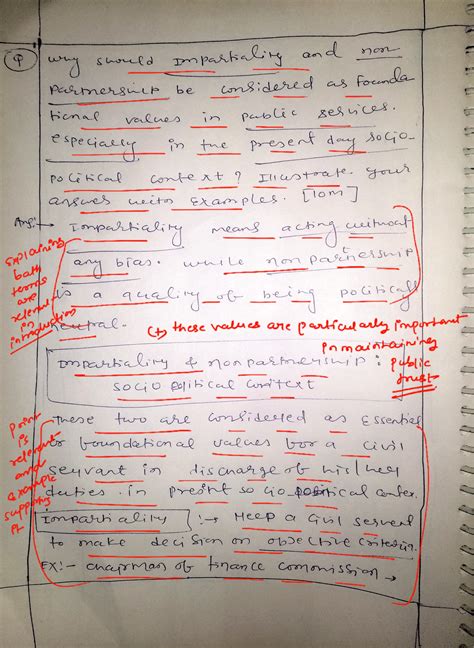 Q why should Impartiality and non
Partnership be considered as Founda
tional values in public services.
especially in the present day socio-
political context? Illustrate. your
answer with examples. [10M]
Ans:- → Impartiality means acting without
any bias. while non partnership
is a quality of being politically
neutral.
explaining
both
terms
are
relevant
in
introduction
(+ these values are particularly important
in maintaining
public
trust
Impartiality & nonpartnership :
socio political context
These two are considered as Essential
or foundational values for a civil
servant in discharge of his/her
duties. in present socio-political contex.
Point
is
relevant
and
example
supports
it
Impartiality :→ Help a Civil servent
to make decision on objective criteria.
Ex:- chairman of finance commission →